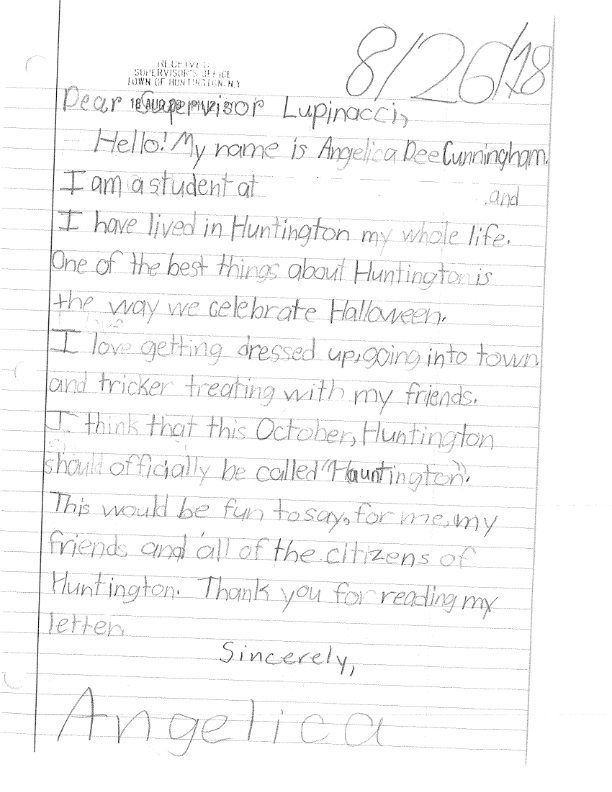 8/26/18
RECEIVED
SUPERVISOR'S OFFICE
TOWN OF HUNTINGTON, N.Y.
Dear Supervisor Lupinacci,
Hello! My name is Angelica Dee Cunningham.
I am a student at and
I have lived in Huntington my whole life.
One of the best things about Huntington is
the way we celebrate Halloween.
I love getting dressed up, going into town
and tricker treating with my friends.
I think that this October, Huntington
should officially be called "Hauntington".
This would be fun to say, for me, my
friends and all of the citizens of
Huntington. Thank you for reading my
letter.
Sincerely,
Angelica